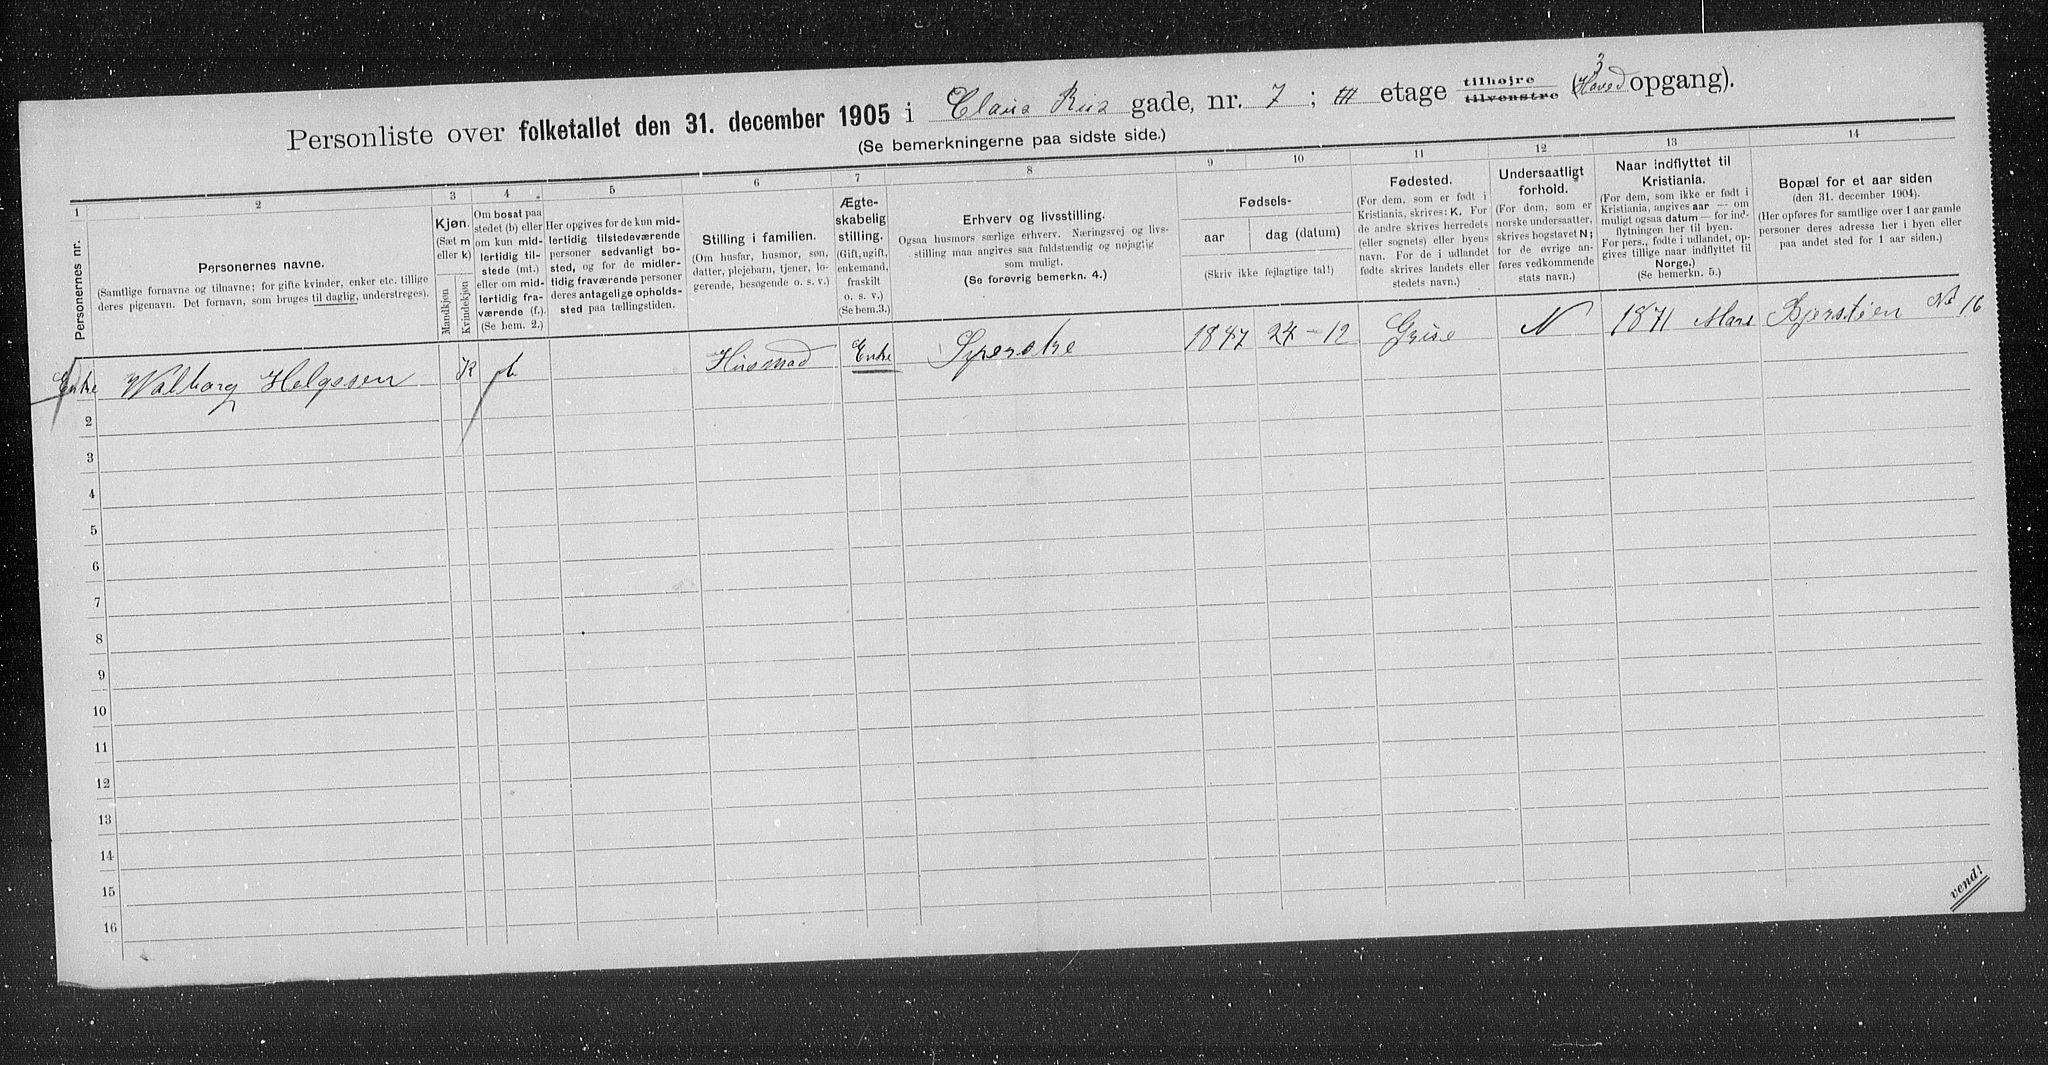 Personliste over folketallet den 31. december 1905 i Claus Riis gade, nr. 7; III etage tilhøjre tilvenstre (Hoved 3 opgang).
(Se bemerkningerne paa sidste side.)
1 2 3 4 5 6 7 8 9 10 11 12 13 14
Personernes nr.
Personernes navne.
(Samtlige fornavne og tilnavne; for gifte kvinder, enker etc. tillige
deres pigenavn. Det fornavn, som bruges til daglig, understreges).
Kjøn.
(Sæt m
eller k)
Mandkjøn
Kvindekjøn
Om bosat paa
stedet (b) eller
om kun mid-
lertidig til-
stede (mt.)
eller om mid-
lertidig fra-
værende (f.)
(Se bem. 2.)
Her opgives for de kun mid-
lertidig tilstedeværende
personer sedvanlig bo-
sted, og for de midler-
tidig fraværende personer
deres antagelige opholds-
sted paa tællingstiden.
Stilling i familien.
(Om husfar, husmor, søn,
datter, plejebarn, tjener, lo-
gerende, besøgende o. s. v.)
Ægte-
skabelig
stilling.
(Gift, ugift,
enkemand,
fraskilt
o. s. v.)
(Se bem.3.)
Erhverv og livsstilling.
Ogsaa husmors særlige erhverv. Næringsvej og livs-
stilling maa angives saa fuldstændig og nøjagtig
som muligt.
(Se forøvrig bemerkn. 4.)
Fødsels-
aar
dag (datum)
(Skriv ikke fejlagtige tal!)
Fødested.
(For dem, som er født i
Kristiania, skrives: K. For
de andre skrives herredets
(eller sognets) eller byens
navn. For de i udlandet
fødte skrives landets eller
stedets navn.)
Undersaatligt
forhold.
(For dem, som er
norske undersaatter,
skrives bogstavet N;
for de øvrige an-
føres vedkommende
stats navn.)
Naar indflyttet til
Kristiania.
(For dem, som ikke er født i
Kristiania, angives aar — om
muligt ogsaa datum — for ind-
flytningen her til byen.
For pers., fødte i udlandet, op-
gives tillige naar indflyttet til
Norge.)
(Se bemerkn. 5.)
Bopæl for et aar siden
(den 31. december 1904).
(Her opføres for samtlige over 1 aar gamle
personer deres adresse her i byen eller
paa andet sted for 1 aar siden.)
Enke Walborg Helgesen K b Husmod Enke 1847 24-12 N 1871 Mars No 16
2
3
4
5
6
7
8
9
10
11
12
13
14
15
16
vend!